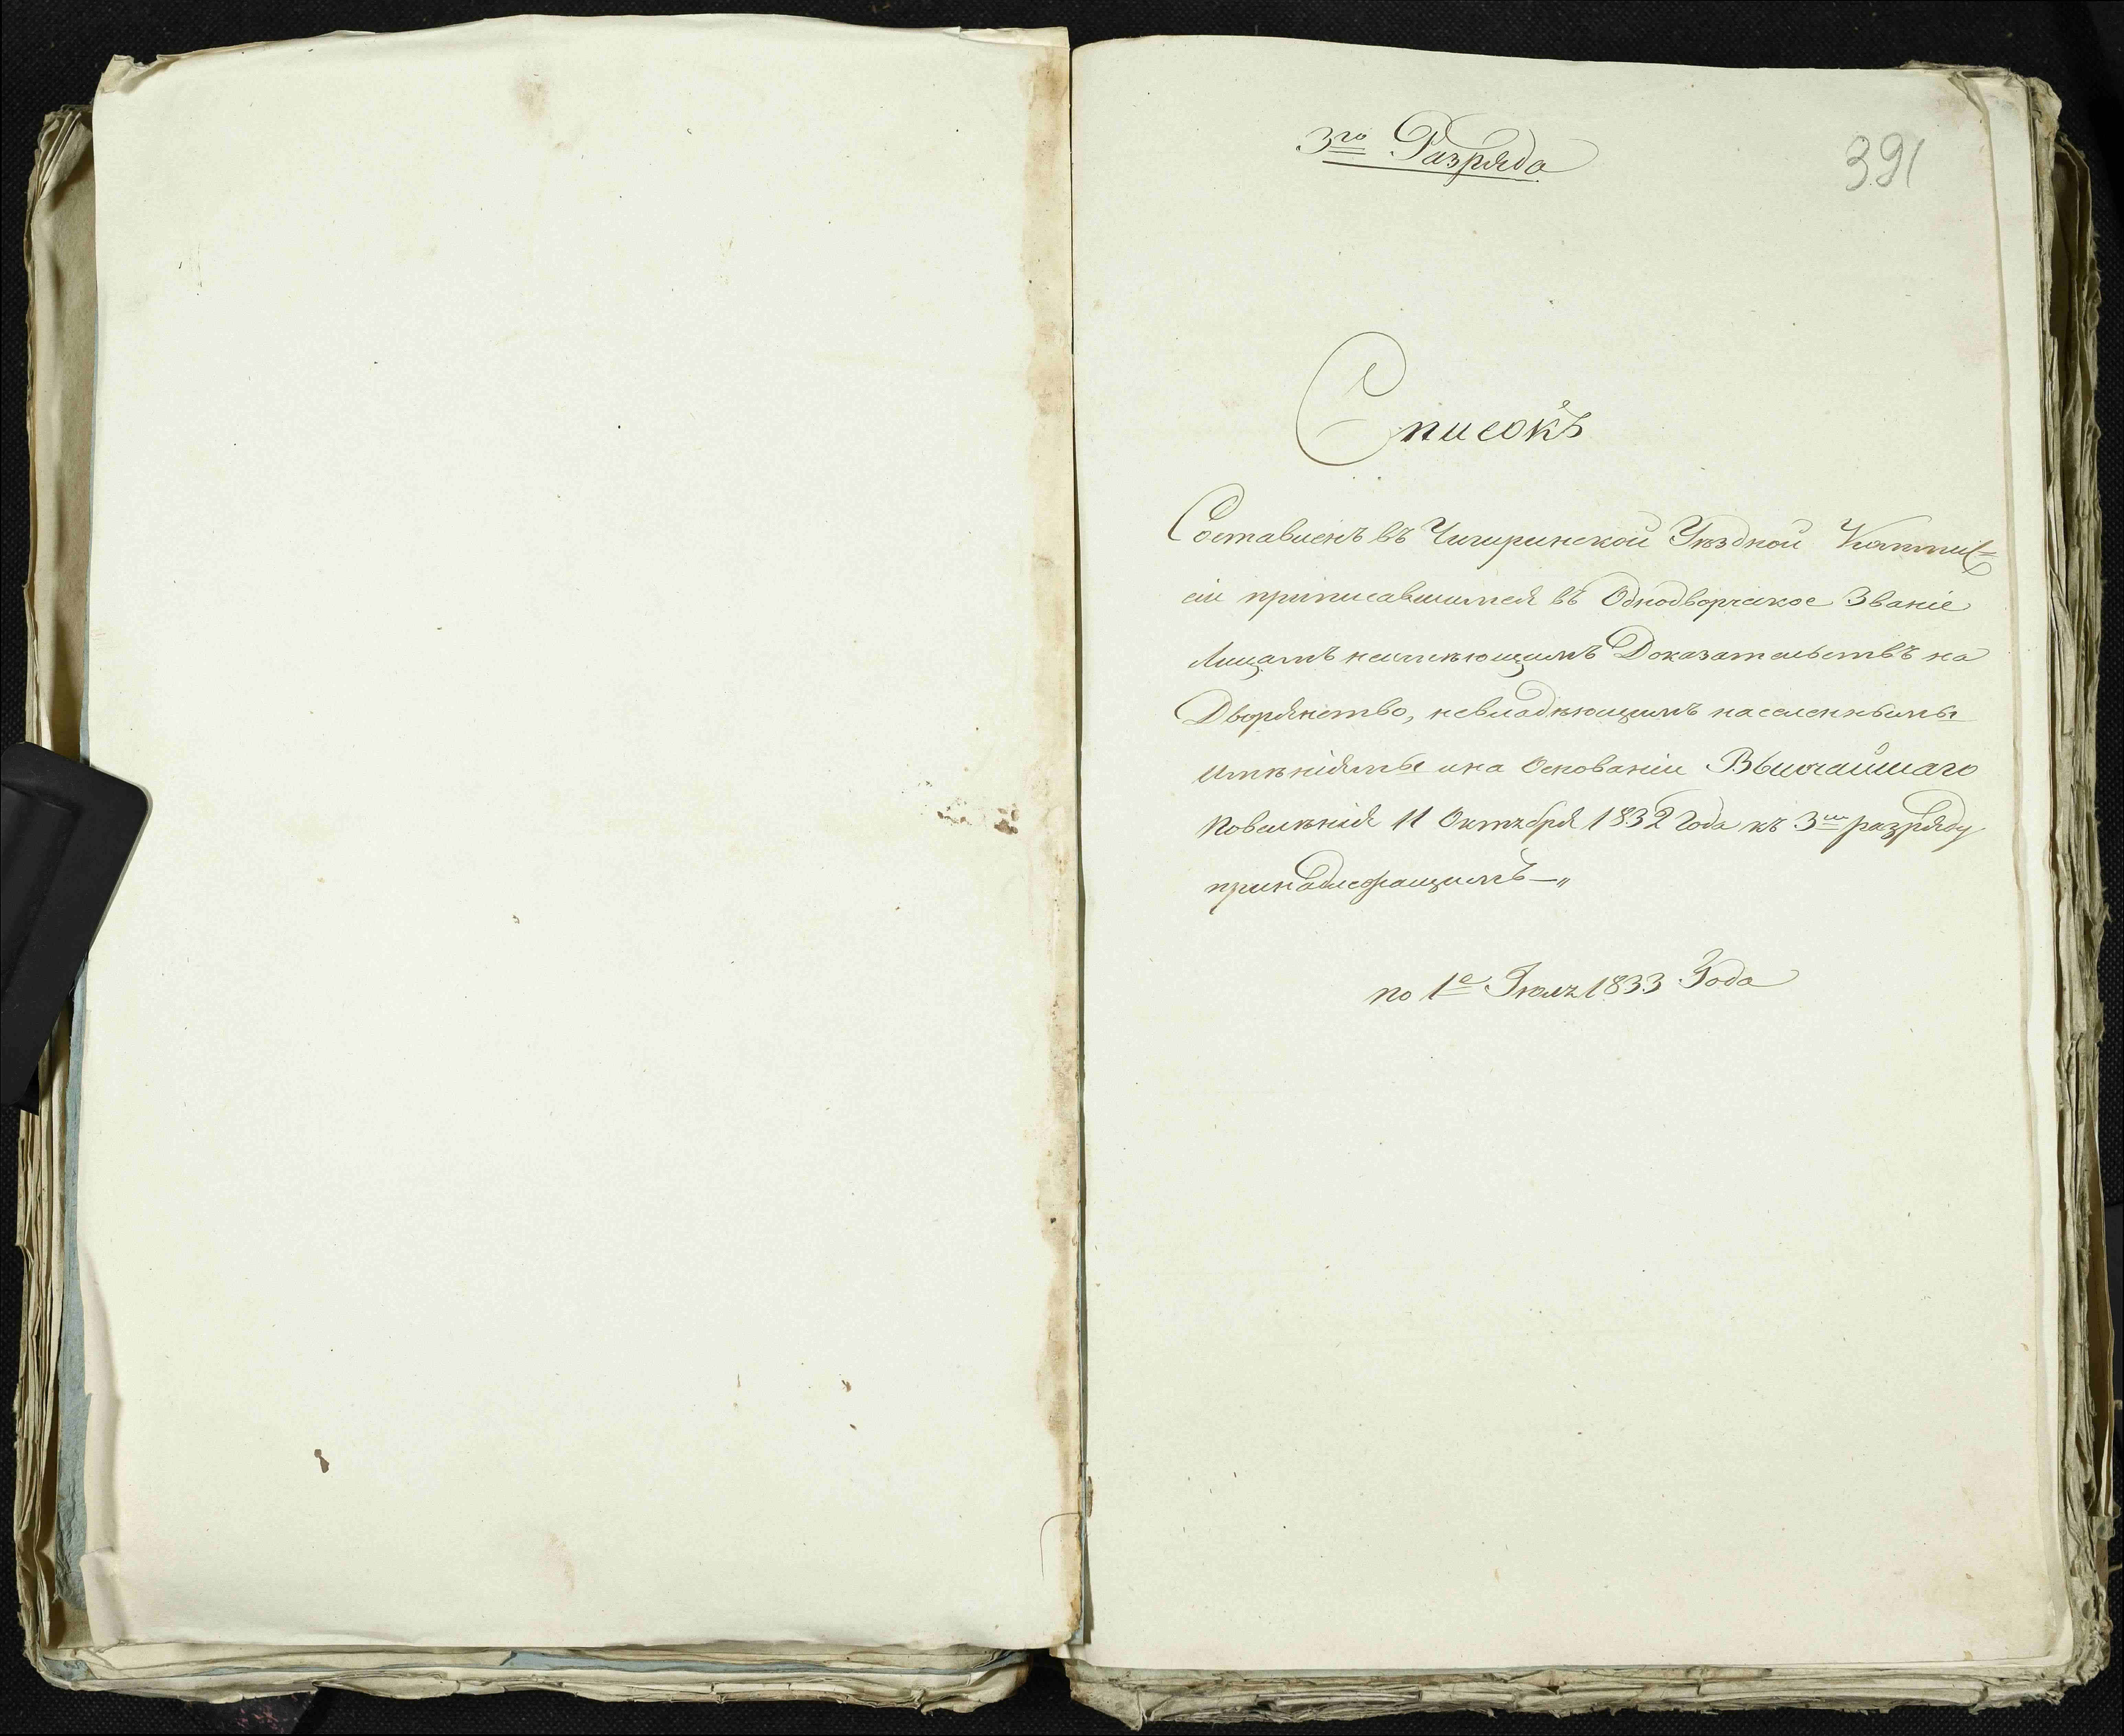 3го Разряда
391
Списокъ
Составленъ въ Чигиринской Уѣздной Коммис=
сіи приписавшимся въ Однодворческое Званіе
Лицамъ неимѣющимъ Доказательствъ на
Дворянство, невладѣющимъ населеннымы
имѣніямы и на Основаніи Высочайшаго
Повелѣнія 11 Октября 1832 Года къ 3му разряду
принадлежащимъ —„
по 1е Іюля 1833 Года